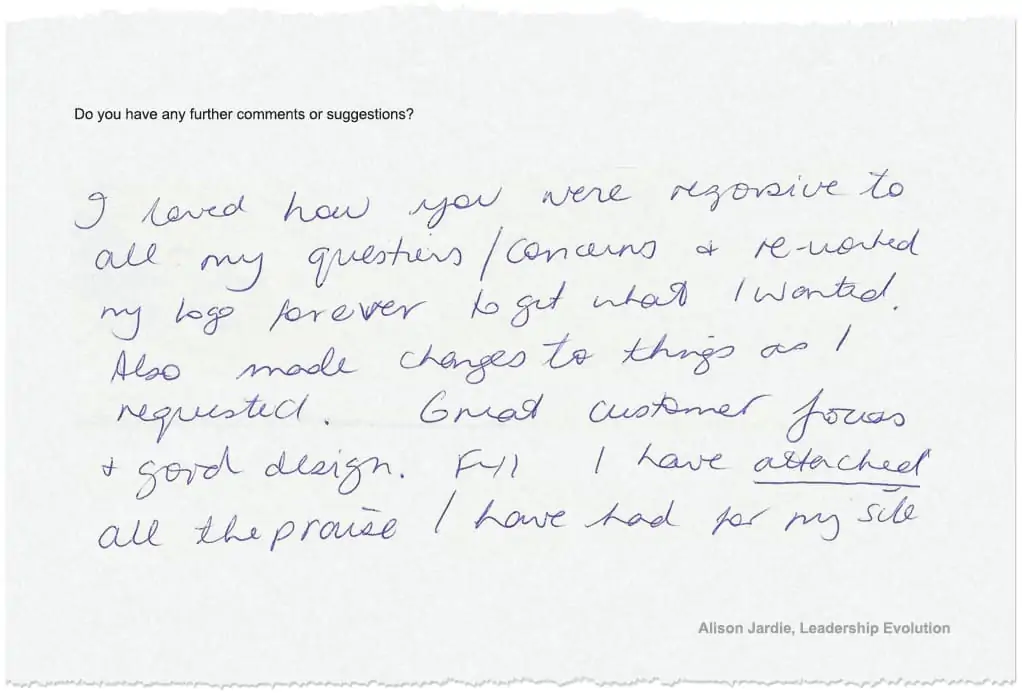 Do you have any further comments or suggestions?
I loved how you were responsive to
all my questions/concerns & re-worked
my logo forever to get what I wanted.
Also made changes to things as I
requested. Great customer focus
& good design. FYI I have attached
all the praise I have had for my site
Alison Jardie, Leadership Evolution